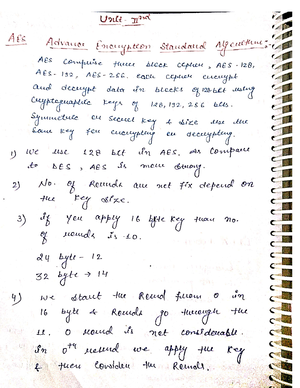 Unit - IInd
AES Advance Encryption Standard Algorithm:-
AES comprise three block cipher, AES-128,
AES-192, AES-256. each cipher encrypt
and decrypt data in blocks of 128 bit using
cryptographic keys of 128, 192, 256 bits.
Symmetric or secret key & size use the
same key for encrypting or decrypting.
1) We use 128 bit in AES, as compare
to DES, AES is more strong.
2) No. of Rounds are not fix depend on
the key size.
3) if you apply 16 byte key than no.
of rounds is 10.
24 byte - 12
32 byte → 14
4) we start the Round from 0 in
16 byte & Rounds go through the
11. 0 round is not considerable.
In 0th round we apply the key
& then consider the Rounds.